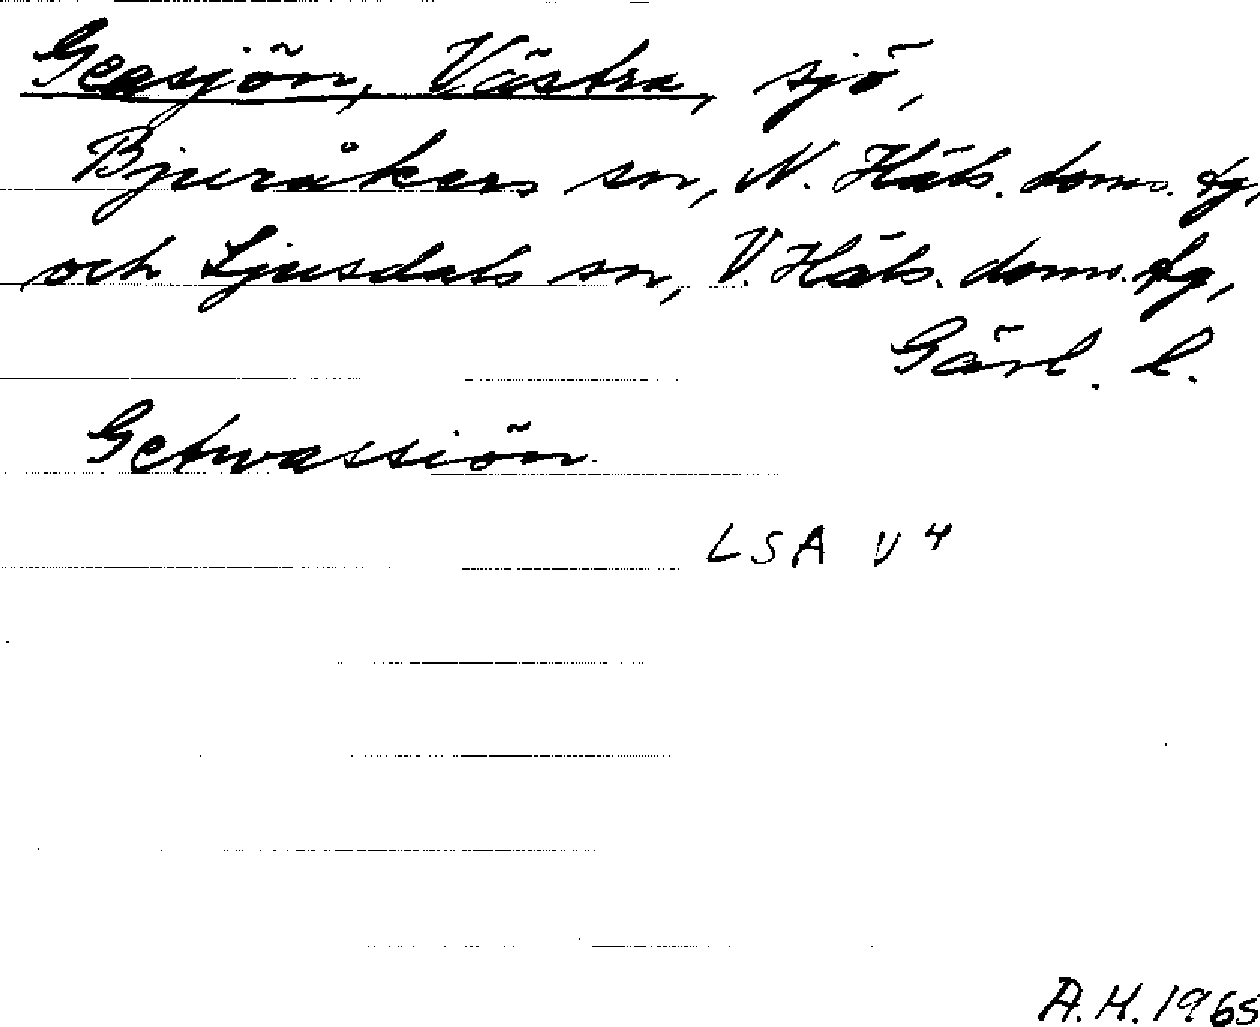 Geasjön, Västra, sjö,
Bjuråkers sn, N. Häls. doms. tg,
och Ljusdals sn, V. Häls. doms. tg,
Gävl. l.
Getwassiön
LSA V 4
A.H. 1965